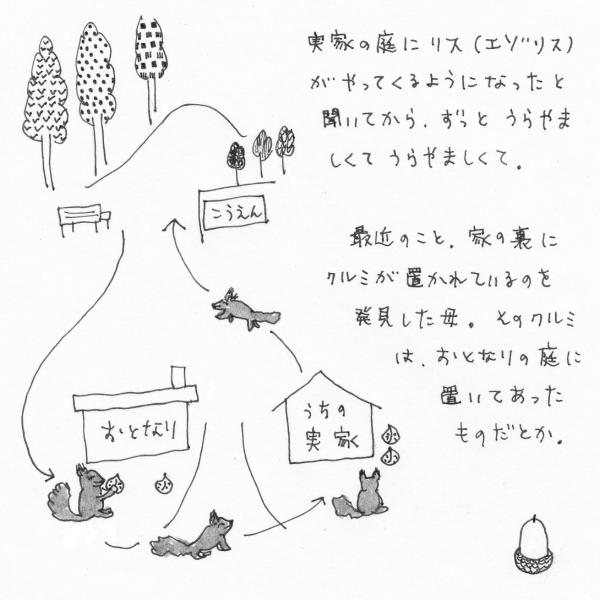 実家の庭にリス(エゾリス)
がやってくるようになったと
聞いてから、ずっとうらやま
しくてうらやましくて。
最近のこと、家の裏に
クルミが置かれているのを
発見した母。そのクルミ
は、おとなりの庭に
置いてあった
ものだとか。
こうえん
おとなり
うちの
実家